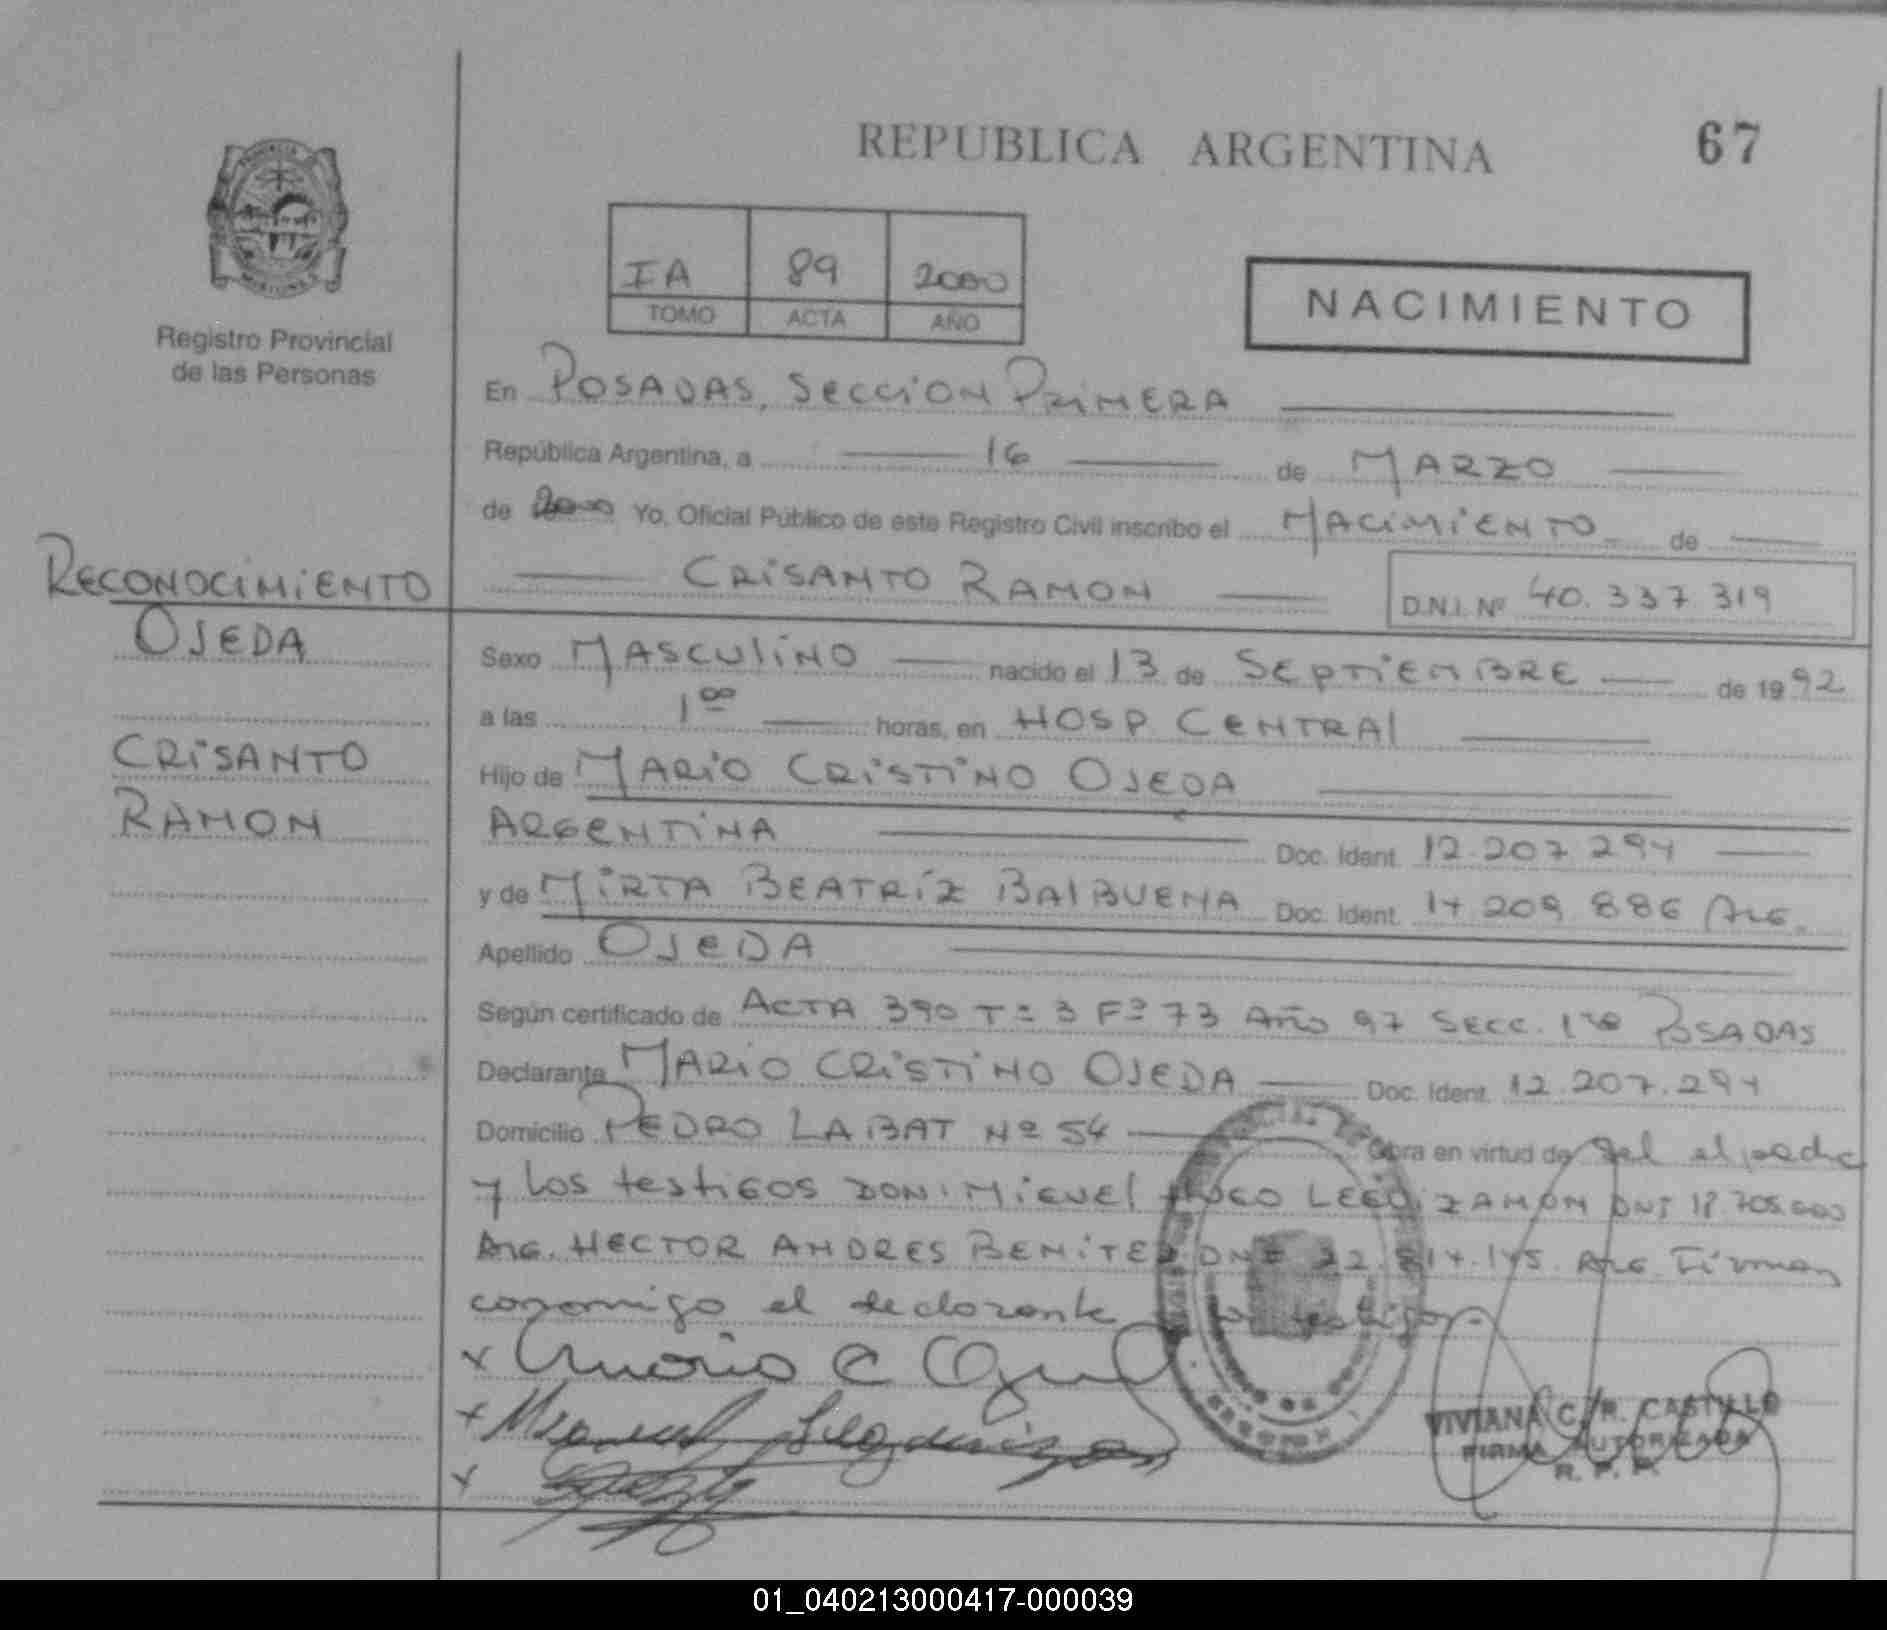 REPUBLICA ARGENTINA
67
IA 89 2000
TOMO ACTA AÑO
NACIMIENTO
Registro Provincial
de las Personas
En POSADAS, SECCION PRIMERA
República Argentina, a 16 de MARZO
de 2000 Yo, Oficial Público de este Registro Civil inscribo el NACIMIENTO de
CRISANTO RAMON
D.N.I. Nº 40.337.319
RECONOCIMIENTO
OJEDA
CRISANTO
RAMON
Sexo MASCULINO nacido el 13 de SEPTIEMBRE de 1992
a las 1 00 horas, en HOSP. CENTRAL
Hijo de MARIO CRISTINO OJEDA
ARGENTINA Doc. Ident. 12.207.294
y de MIRTA BEATRIZ BALBUENA Doc. Ident. 14 209 886 ARG.
Apellido OJEDA
Según certificado de ACTA 390 Tº 3 Fº 73 Año 97 SECC. 1ra POSADAS
Declarante MARIO CRISTINO OJEDA Doc. Ident. 12.207.294
Domicilio PEDRO LABAT Nº 54 Obra en virtud de ser el padre
y los testigos DON: MIGUEL HUGO LEGUIZAMON DNI
ARG. HECTOR ANDRES BENITEZ DNI ARG. Firman
conmigo el declarante y los testigos.
x Mario C Ojeda
x Miguel Leguizamon
x
VIVIANA C. R. CASTILLO
FIRMA AUTORIZADA
R. P. P.
01_040213000417-000039